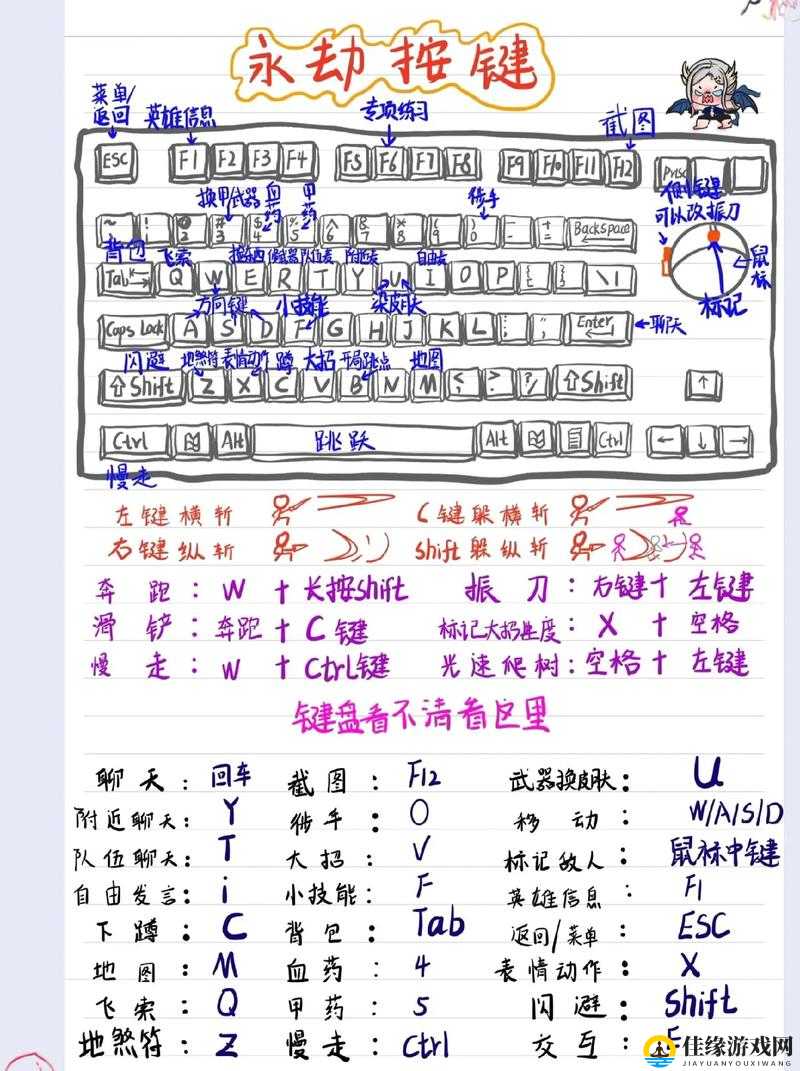 永劫按键
菜单/返回
英雄信息
专项练习
截图
ESC F1 F2 F3 F4 F5 F6 F7 F8 F9 F10 F11 F12 Prtsc
换甲 武器 血药 甲药 徒手
侧键可以改振刀
~ ! 2 # 3 $ 4 % 5 ^ 6 & 7 * 8 ( 9 ) 0 - = + Backspace
背包 飞索 队伍麦 附近麦 自由麦
鼠标
Tab Q W E R T Y U I O P { [ } ] \ |
标记
方向键 小技能 换皮肤
Caps Lock A S D F G H J K L : ; Enter 聊天
闪避 地煞符 表情动作 蹲 大招 开局跳点 地图
Shift Z X C V B N M < ? / Shift ↑
Ctrl Alt 跳跃 Alt Ctrl ← ↓ →
慢走
左键横斩 C键躲横斩
右键纵斩 shift躲纵斩
奔跑：W + 长按shift 振刀：右键+ 左键
滑铲：奔跑+ C键 标记大招进度：X + 空格
慢走：W + Ctrl键 光速爬树：空格+ 左键
键盘看不清看这里
聊天：回车 截图：F12 武器换皮肤：U
附近聊天：Y 徒手：0 移动：W/A/S/D
队伍聊天：T 大招：V 标记敌人：鼠标中键
自由发言：i 小技能：F 英雄信息：F1
下蹲：C 背包：Tab 返回/菜单：ESC
地图：M 血药：4 表情动作：X
飞索：Q 甲药：5 闪避：Shift
地煞符：Z 慢走：Ctrl 交互：E
佳缘游戏网
JIAYUANYOUXIWANG